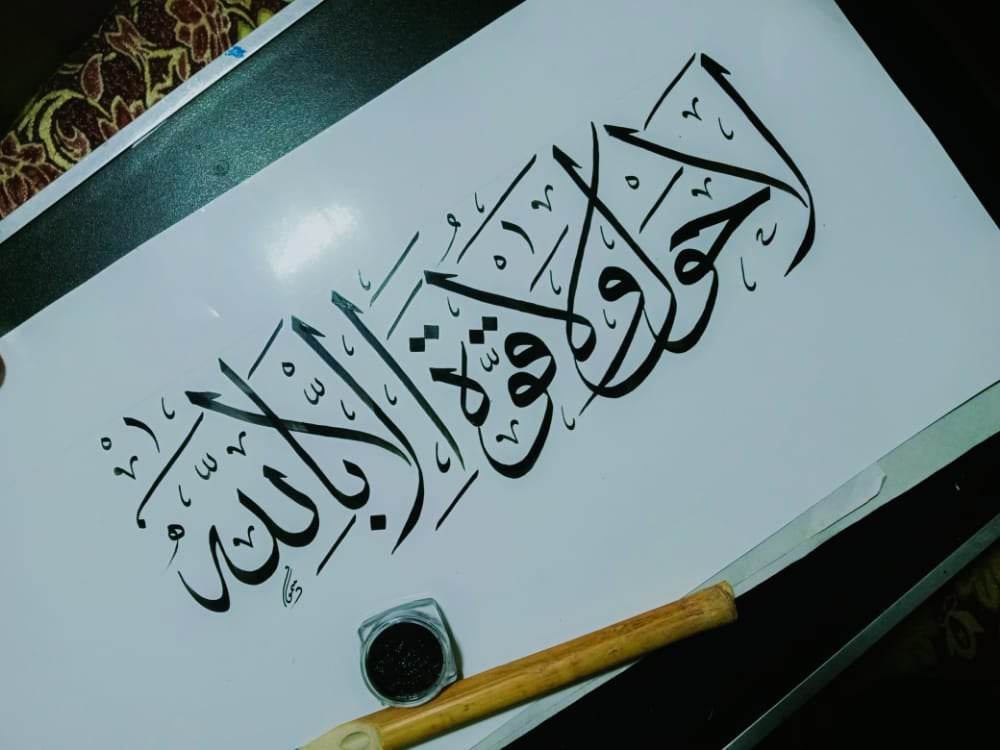 لا حول ولا قوّة إلّا باللّه